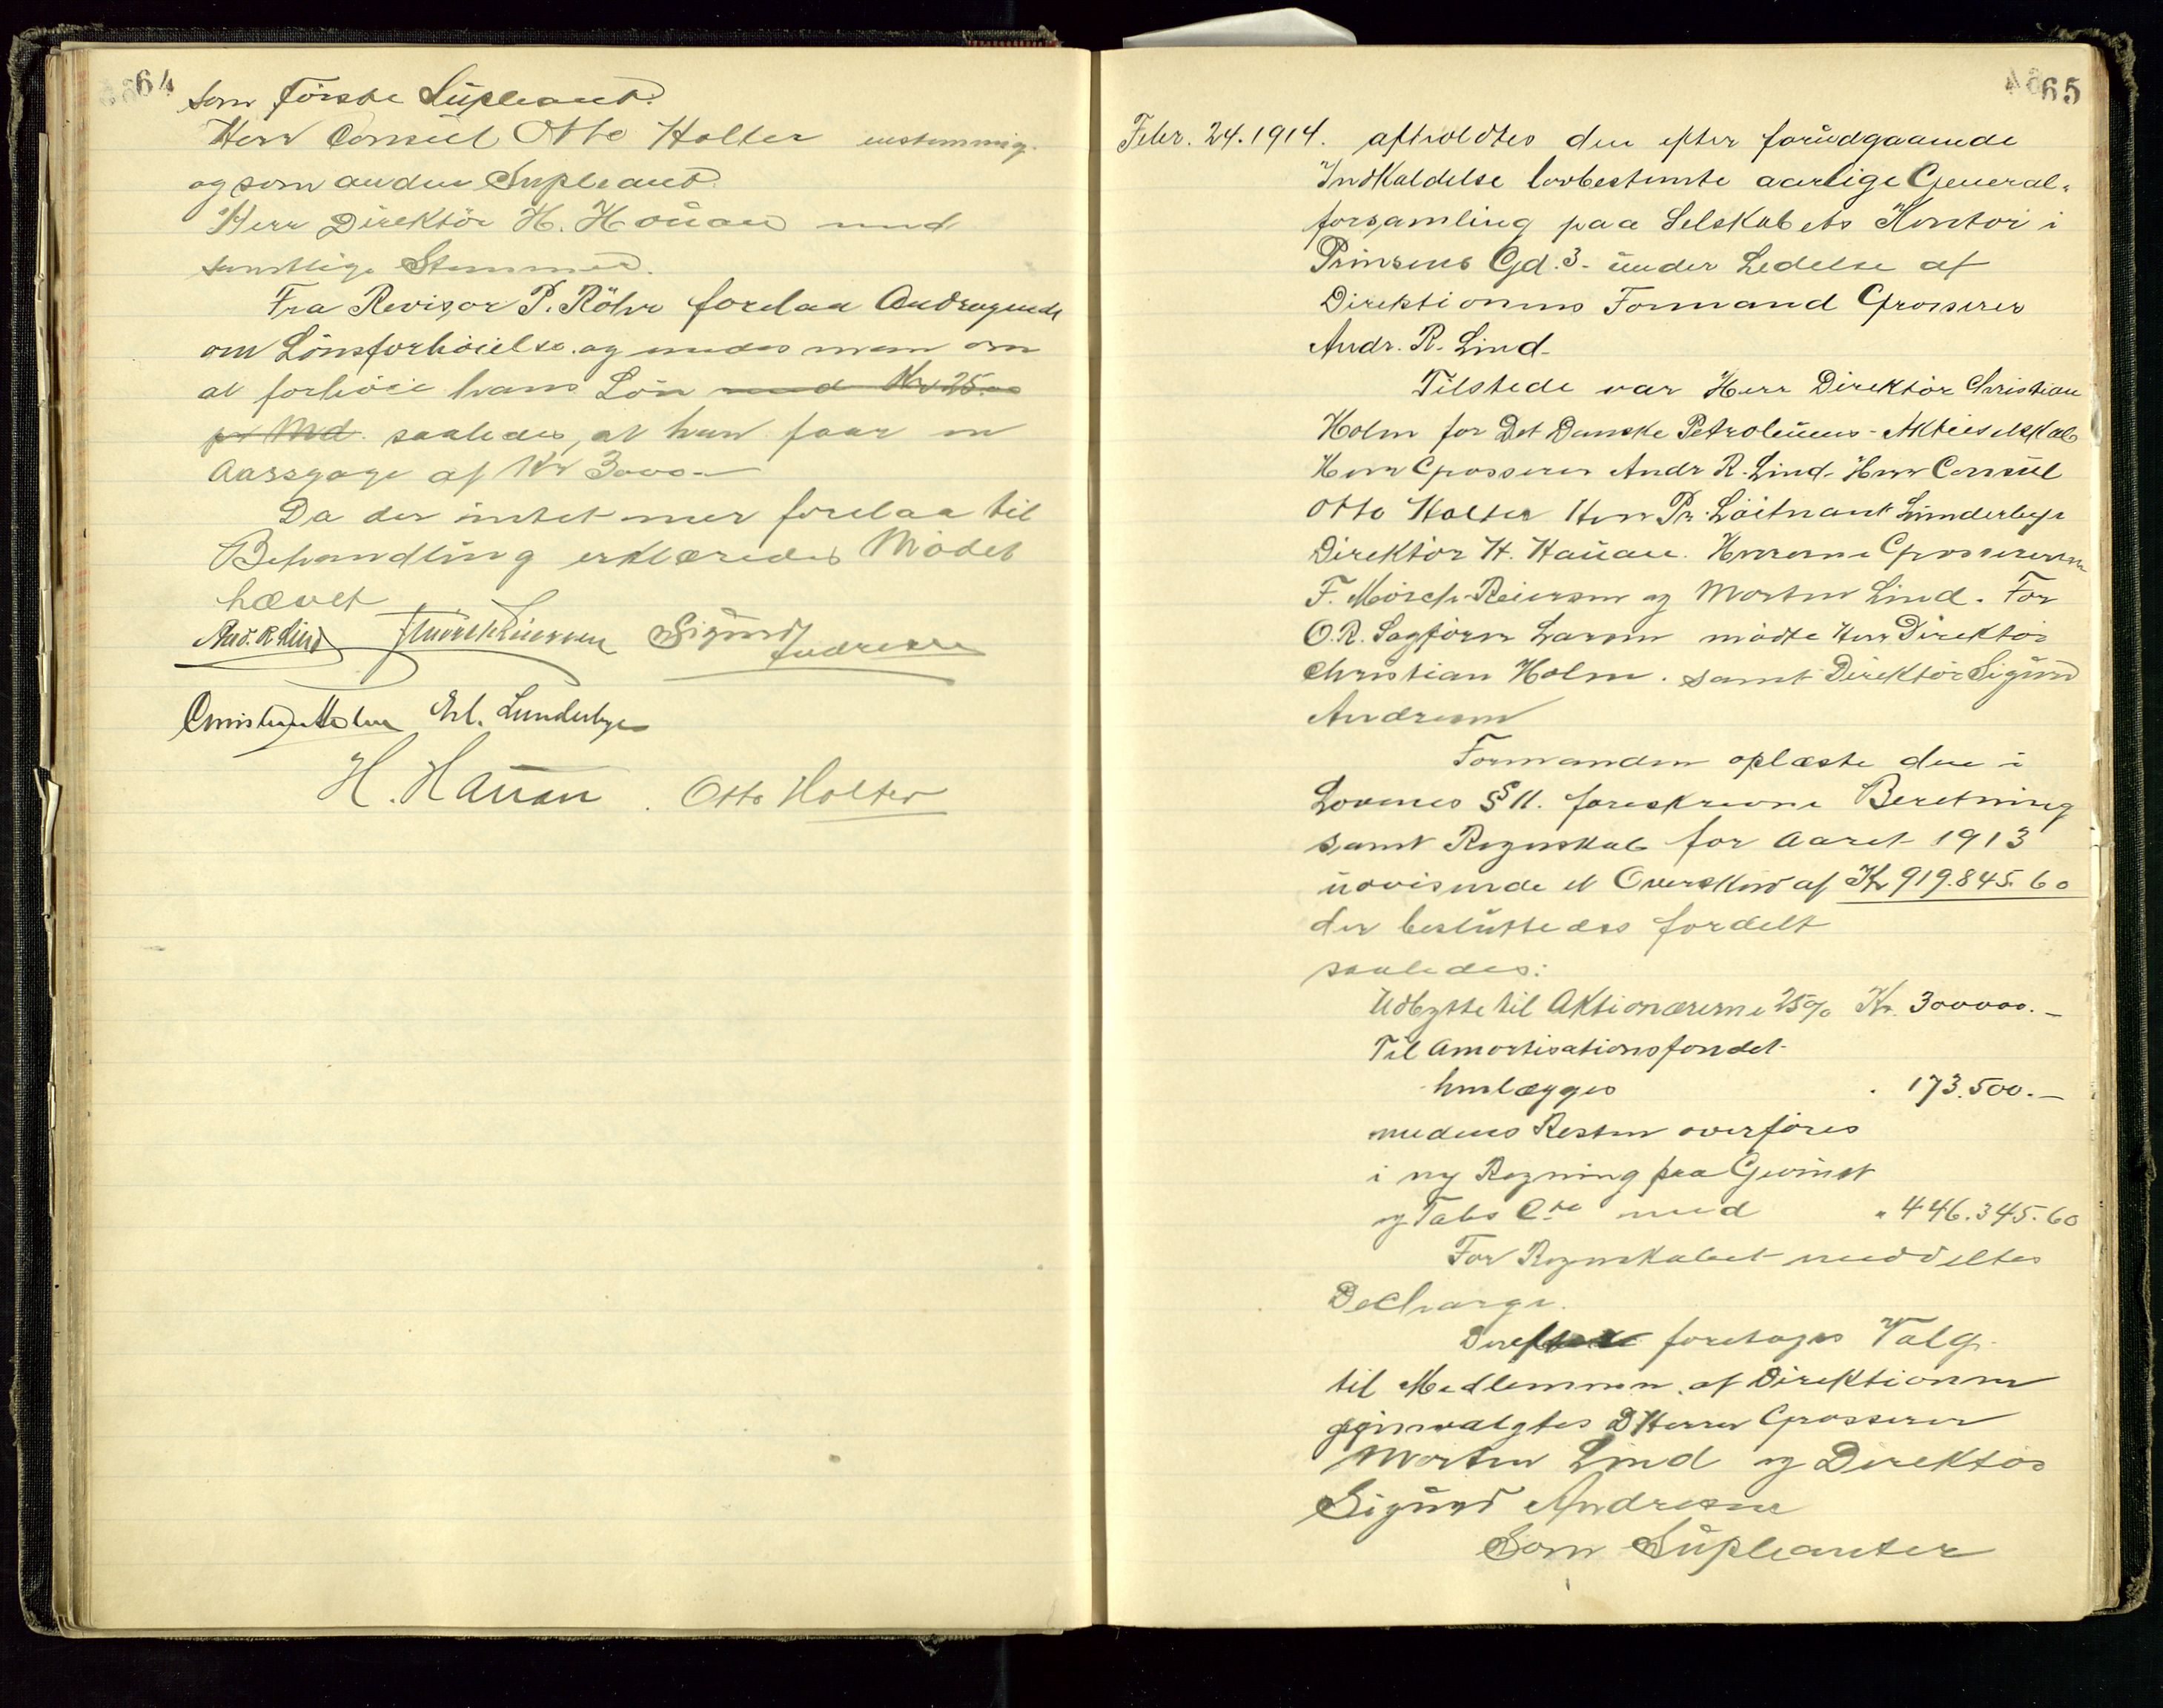 64
som første Supleant.
Herr Consul Otto Holter enstemmig.
og som anden Supleant.
Herr Direktör H. Hauan med
samtlige Stemmer.
Fra Revisor P. Röhr forelaa Andragende
om Lönsforhöielse og enedes man om
at forhöie hans Lön med Kr 25.00
pr Md. saaledes, at han faar en
Aarsgage af Kr 3000.-
Da der intet mer forelaa til
Behandling erklæredes Mödet
hævet
And. R Lind F Mörch Reiersen Sigurd Andresen
Christian Holm Erl. Lunderbye
H. Hauan. Otto Holter
65
Febr. 24. 1914. afholdtes den efter forudgaaende
Indkaldelse lovbestemte aarlige General-
forsamling paa Selskabets Kontor i
Prinsens Gd. 3. under Ledelse af
Direktionens Formand Grosserer
Andr. R. Lind.
Tilstede var Herr Direktör Christian
Holm for Det Danske Petroleums-Aktieselskab
Herr Grosserer Andr R. Lind. Herr Consul
Otto Holter Herr Pr. Löitnant Lunderbye
Direktör H. Hauan. Herrerne Grossererne
F. Mörch-Reiersen og Morten Lind. For
O.R. Sagförer Larsen mödte Herr Direktör
Christian Holm. samt Direktör Sigurd
Andresen
Formanden oplæste den i
Lovenes § 11. foreskrevne Beretning
samt Regnskab for Aaret 1913
udvisende et Overskud af Kr 919.845.60
der besluttedes fordelt
saaledes:
Udbytte til Aktionærerne 25% Kr. 300000.-
Til Amortisationsfondet
henlægges . 173.500.-
medens Resten overföres
i ny Regning paa Gevinst
og Tabs Cto med " 446.345.60
For Regnskabet meddeltes
Decharge.
foretoges Valg.
til Medlemmer af Direktionen
gjenvalgtes D'Herrer Grosserer
Morten Lind og Direktör
Sigurd Andresen
Som Supleanter